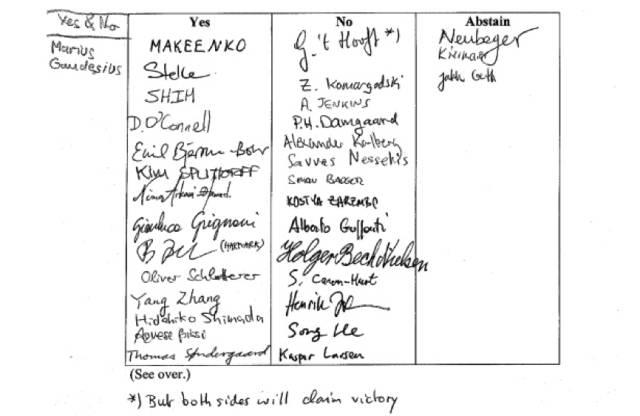 Yes & No
Marius
Gaudesius
Yes
MAKEENKO
Stelle
SHIM
D.O'Connell
Emil Bjerrum-Bohr
KIM SPLITTORFF
Nima Arkani-Hamed
Gianluca Grignani
(HARTMARK)
Oliver Schlotterer
Yang Zhang
Hidehiko Shimada
Thomas Søndergaard
No
G. 't Hooft *)
Z. Komargodski
A. JENKINS
P.H. Damgaard
Alexander Karlberg
Savvas Nesseris
Simon BADGER
KOSTYA ZAREMBO
Alberto Guffanti
Holger Bech Nielsen
S. Caron-Huot
Henrik
Song He
Kasper Larsen
Abstain
Neuberger
(See over.)
*) But both sides will claim victory